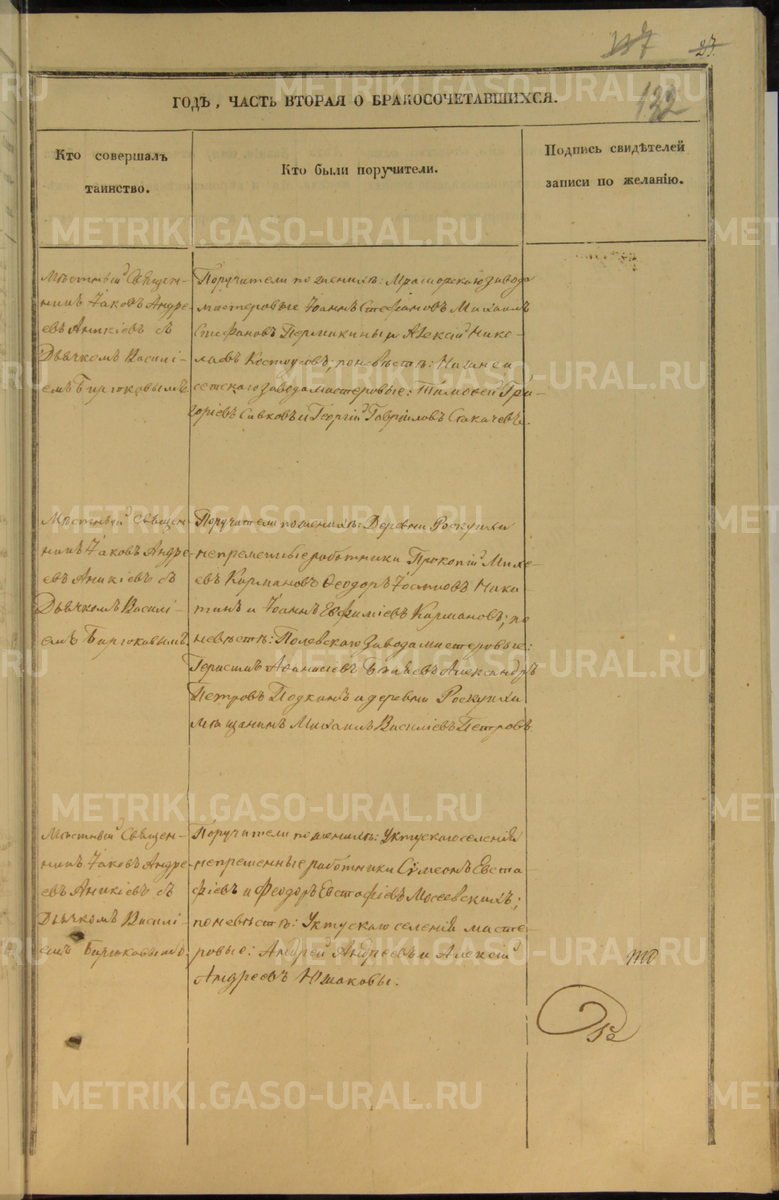 117 27.
132
ГОДЪ, ЧАСТЬ ВТОРАЯ О БРАКОСОЧЕТАВШИХСЯ.
Кто совершалъ
таинство.
Кто были поручители.
Подпись свидѣтелей
записи по желанію.
Мѣстный Священ-
никъ Іаковъ Андре-
евъ Аникіевъ съ
Дьячкомъ Василі-
емъ Бирюковымъ
Поручители по женихѣ: Мраморскаго завода
мастеровые Іоаннъ Стефановъ, Михаилъ
Стефановъ Пермикины и Алексій Нико-
лаевъ Костоусовъ, по невѣстѣ: Нижне и
сетскаго завода мастеровые: Тимоѳей Гри-
горіевъ Савковъ и Георгій Гавріиловъ
Мѣстный Священ-
никъ Іаковъ Андре-
евъ Аникіевъ съ
Дьячкомъ Василі-
емъ Бирюковымъ
Поручители по женихѣ: Деревни
непремѣнные работники Прокопій Михе-
евъ Кармановъ Ѳеодоръ Ники-
тинъ и Іоаннъ Евфиміевъ Кармановъ; по
невѣстѣ: Полевскаго Завода мастеровые:
Герасимъ Аѳанасіевъ Александръ
Петровъ и деревни
мѣщанинъ Михаилъ Василіевъ Петровъ
Мѣстный Священ-
никъ Іаковъ Андре-
евъ Аникіевъ съ
Дьячкомъ Василі-
емъ Бирюковымъ
Поручители по женихѣ: Уктускаго селенія
непремѣнные работники Сѵмеонъ Евста-
фіевъ и Феодоръ Евстафіевъ
по невѣстѣ: Уктускаго селенія масте-
ровые: Андрей Андреевъ и Алексій
Андреевъ Южаковы.
METRIKI.GASO-URAL.RU